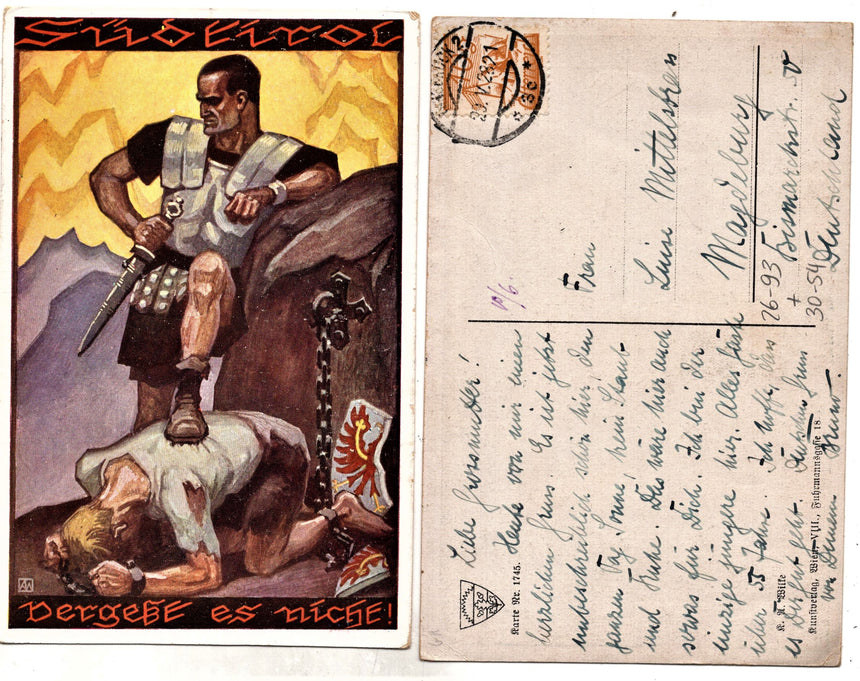 Südtirol
Vergeßt es nicht!
Frau
Luise Mittelstrass
Magdeburg
Bismarckstr. 50
Deutschland
26-93
+
30-54
10/6
Liebe Grossmutter!
Heute von mir einen
herzlichen Gruss. Es ist jetzt
unbeschreiblich schön hier, den
ganzen Tag Sonne, kein Staub
und Ruhe. Das wäre hier auch
sowas für Dich. Ich bin der
einzige jüngere hier. Alles
über 55 Jahre. Ich hoffe, dass
es Dir gut geht.
von Deinem
Karte Nr. 1745.
K. A. Wilke
Kunstverlag, Wien VIII., Fuhrmannsgasse 18